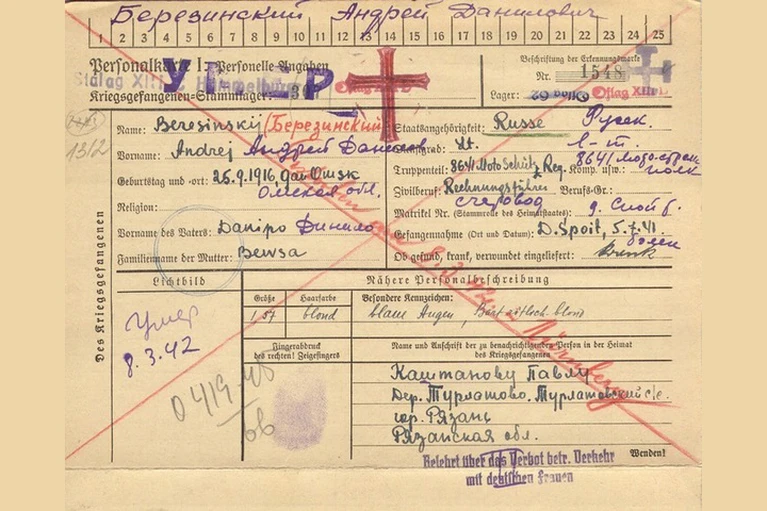 Березинский Андрей Данилович
1 2 3 4 5 6 7 8 9 10 11 12 13 14 15 16 17 18 19 20 21 22 23 24 25
Personalkarte I: Personelle Angaben
Kriegsgefangenen-Stammlager:
Stalag XIII
Beschriftung der Erkennungsmarke
Nr. 1548
Lager: Oflag 62 Oflag XIII D.
Des Kriegsgefangenen
Name: Beresinskij (Березинский
Vorname: Andrej Андрей
Geburtstag und -ort: 25.9.1916, Omsk
Омская обл.
Religion:
Vorname des Vaters: Danipo
Familienname der Mutter: Bewsa
Staatsangehörigkeit: Russe Русск.
Dienstgrad: Lt. л-т.
Truppenteil: 8641 Moto Schütz Reg. Komp. usw.: 8641 полк
Zivilberuf: Rechnungsführer Berufs-Gr.:
счетовод
Matrikel Nr. (Stammrolle des Heimatstaates)
Gefangennahme (Ort und Datum): 5.7.41.
Ob gesund, krank, verwundet eingeliefert: krank
болен
Lichtbild
Умер
8.3.42
0419
ов
1312
Nähere Personalbeschreibung
Größe Haarfarbe Besondere Kennzeichen:
1,57 blond blaue Augen, Bart rötlich blond
Fingerabdruck
des rechten! Zeigefingers
Name und Anschrift der zu benachrichtigenden Person in der Heimat
des Kriegsgefangenen
Каштанову Павлу
Дер. Турлатово. Турлатовский с/с.
гор. Рязань
Рязанская обл.
Nürnberg
Belehrt über das Verbot betr. Verkehr
mit deutschen Frauen
Wenden!